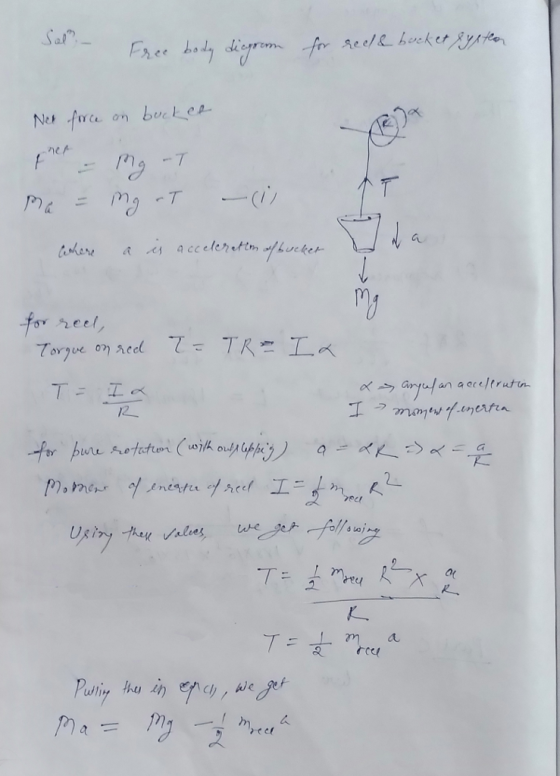 Solⁿ:- Free body diagram for reel & bucket system
Net force on bucket
F^net = Mg - T
Ma = Mg - T —(i)
where a is acceleration of bucket
R α
T
a
Mg
for reel,
Torque on reel τ = TR = Iα
T = Iα / R
α → angular acceleration
I → moment of inertia
for pure rotation (without slipping) a = αR ⇒ α = a/R
Moment of inertia of reel I = 1/2 m_reel R²
Using these values, we get following
T = 1/2 m_reel R² × a/R
R
T = 1/2 m_reel a
Putting this in eq(1), we get
Ma = Mg - 1/2 m_reel a